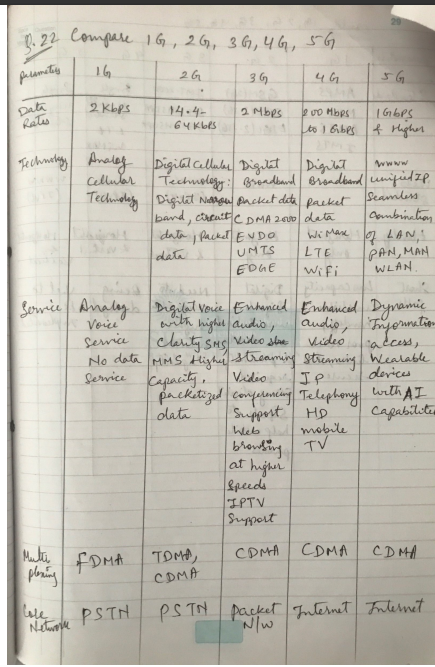 20
Q.22 Compare 1G, 2G, 3G, 4G, 5G
Parameters 1G 2G 3G 4G 5G
Data Rates 2 Kbps 14.4-64 Kbps 2 Mbps 200 Mbps to 1 Gbps 1 Gbps & Higher
Technology Analog Cellular Technology
Digital Cellular Technology: Digital Narrow band, circuit data, Packet data
Digital Broadband Packet data CDMA 2000 EVDO UMTS EDGE
Digital Broadband Packet data WiMax LTE WiFi
wwww unified IP Seamless Combination of LAN, PAN, MAN WLAN.
Service Analog Voice Service No data Service
Digital Voice with higher Clarity SMS MMS, Higher Capacity, packetized data
Enhanced audio, Video Streaming Video conferencing Support Web browsing at higher Speeds IPTV Support
Enhanced audio, Video Streaming IP Telephony HD mobile TV
Dynamic Information access, Wearable devices with AI Capabilities
Multi plexing FDMA TDMA, CDMA CDMA CDMA CDMA
Core Network PSTN PSTN Packet N/W Internet Internet